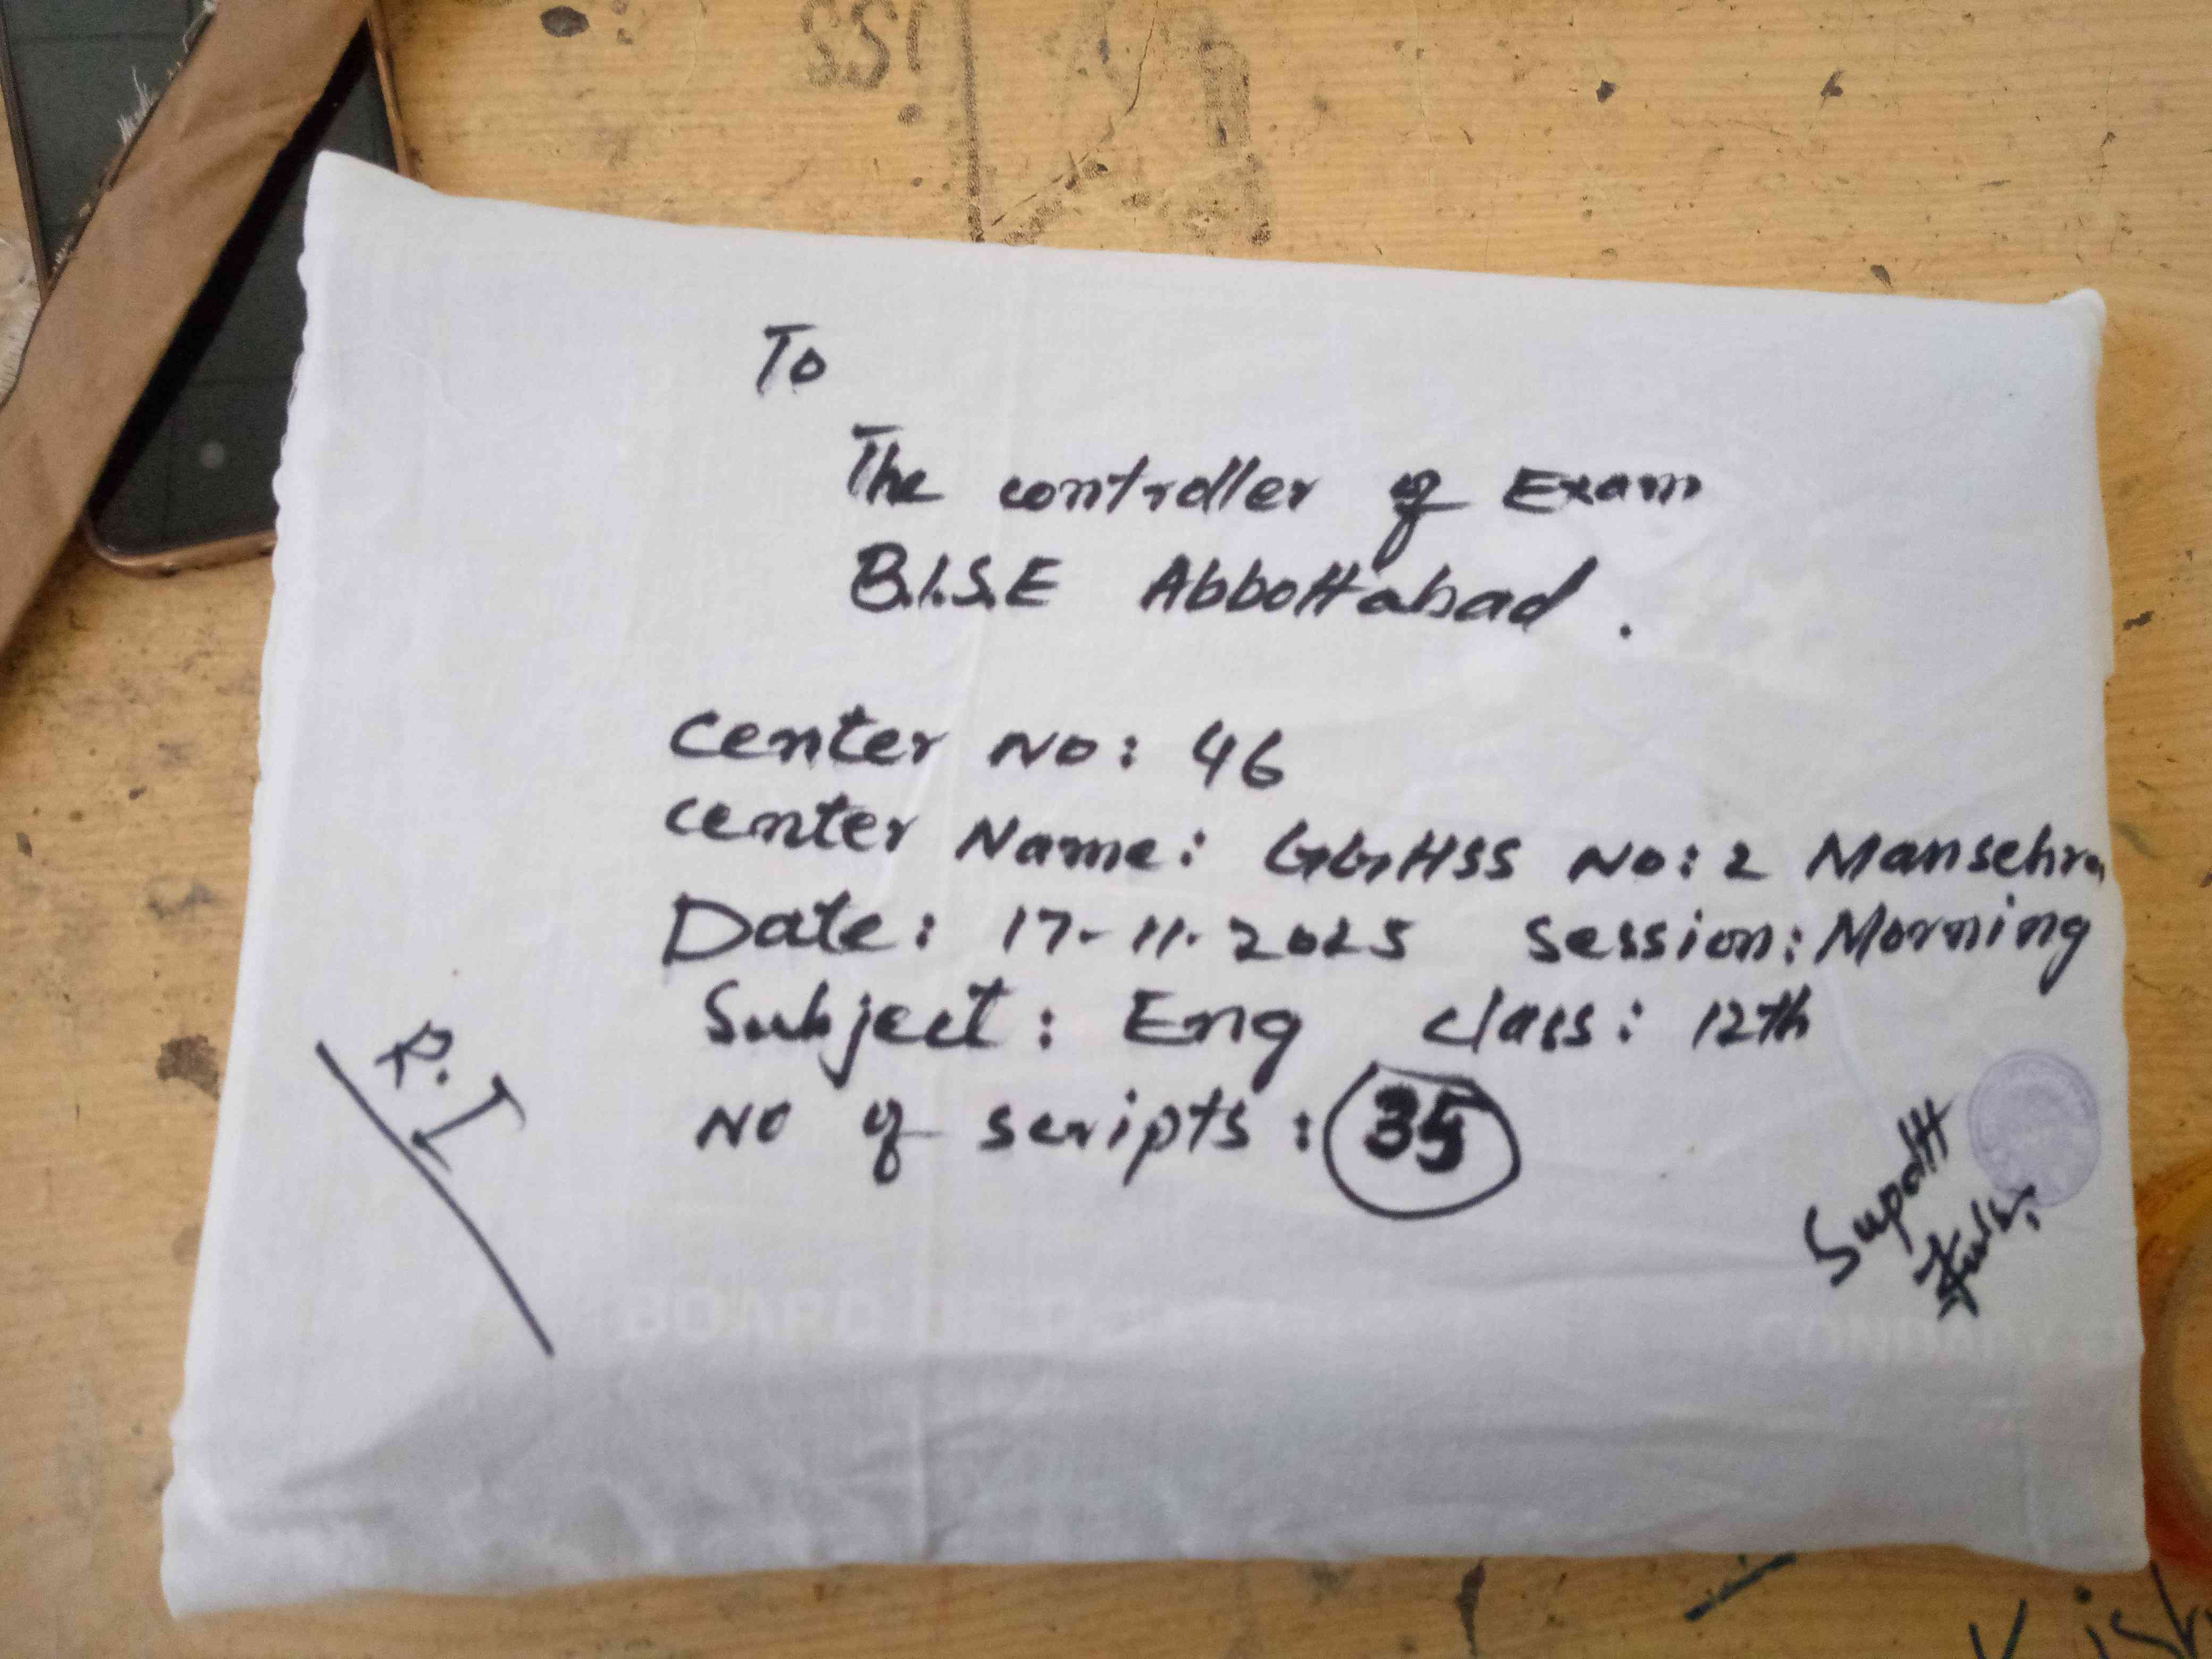 To
The controller of Exam
B.I.S.E Abbottabad.
Center No: 46
Center Name: GGHSS No: 2 Mansehra
Date: 17-11-2025 Session: Morning
Subject: Eng class: 12th
No of scripts: 35
R.I
Supdtt
BOARD
SSI